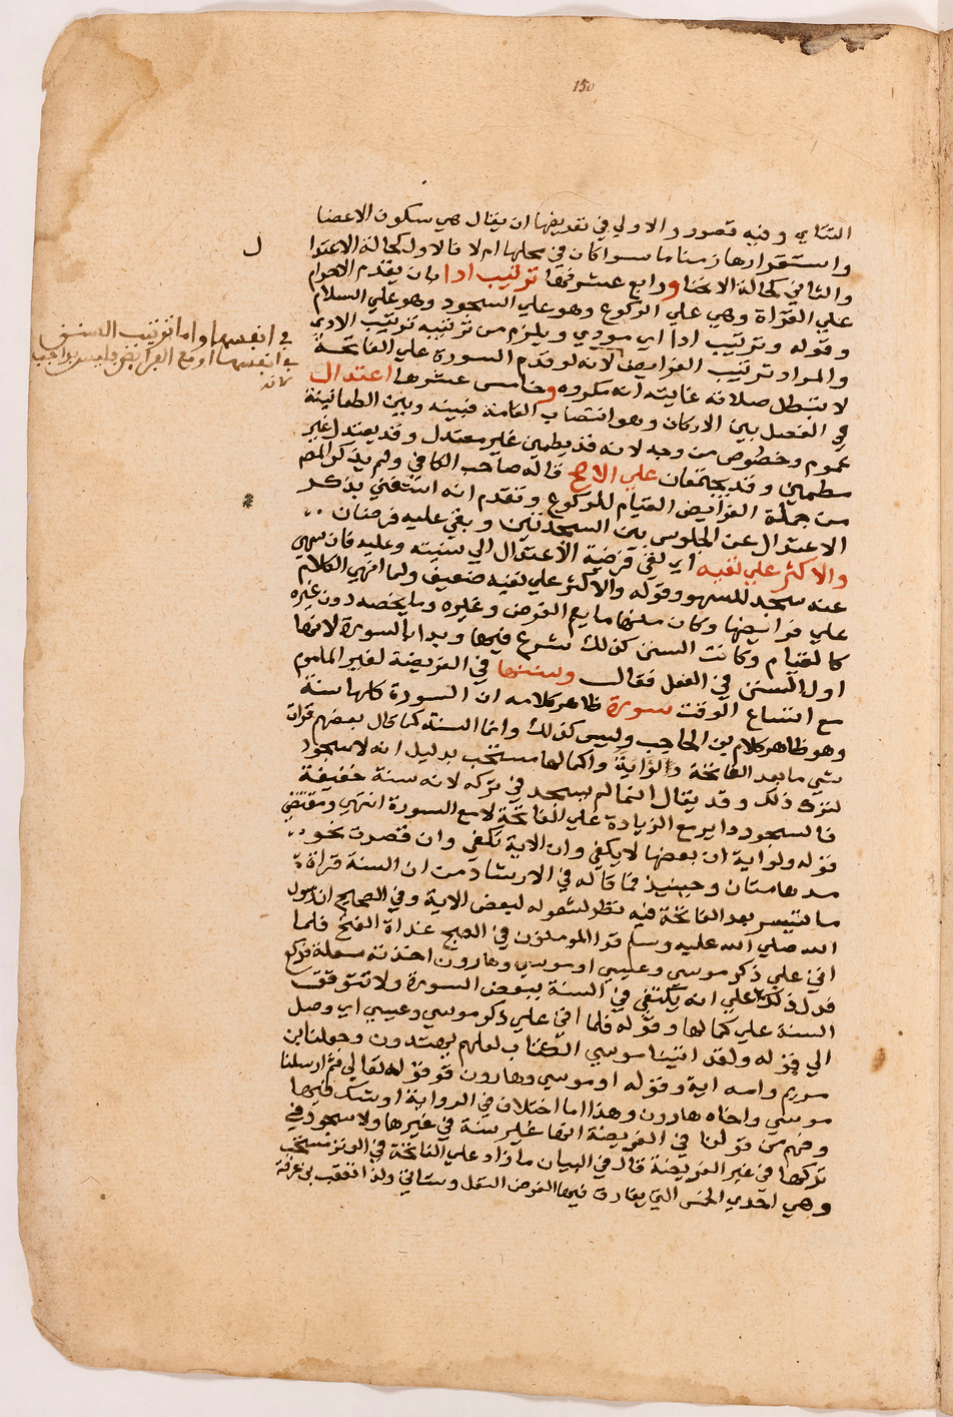 150
الثتاي وفيه قصور والاولي في تعريفها ان يقال هي سكون الاعضا
واستقرارها زمنا ما سوا كان في محلها ام لا فالاول كحالة الاعتدا ل
والثاني كحالة الانحنا ورابع عشرفها ترتيب ادا بان يقدم الاحرام
علي القراة وهي علي الركوع وهو علي السجود وهو علي السلام
وقوله وترتيب ادا اي مودي ويلزم من ترتيبه ترتيب الادي
والمراد ترتيب الفرايض لانه لو قدم السورة علي الفاتحة
في انفسها واما ترتيب السنن
في انفسها او مع الفرايض فليس بواجب
لانه
لا تبطل صلاته غايته انه مكروه وخامس عشرها اعتدال
في الفصل بين الاركان وهو انتصاب القامة فبينه وبين الطمانينة
عموم وخصوص من وجه لانه قد يطمين غير معتدل وقد يعتدل غير
مطمين وقد يجتمعان علي الاصح قاله صاحب الكافي ولم يذكر المص
من جملة الفرايض القيام للركوع وتقدم انه استغني بذكر
الاعتدال عن الجلوس بين السجدتين وبقي عليه فرضان
والاكثر علي نفيه اي نفي فرضية الاعتدال الي سنيته وعليه فان سهي
عنه سجد للسهو وقوله والاكثر علي نفيه ضعيف ولما انهي الكلام
علي فرايضها وكان منها ما يعم الفرض وغيره وما يخصه دون غيره
كالقيام وكانت السنن كذلك شرع فيها وبدا بالسورة لانها
اول السنن في الفعل فقال وسننها في الفريضة لغير الماموم
مع اتساع الوقت سورة ظاهر كلامه ان السورة كلها سنة
وهو ظاهر كلام بن الحاجب وليس كذلك وانما السنة كما قال بعضهم قراة
شي ما بعد الفاتحة ولو اية واكمالها مستحب بدليل انه لا سجود
لترك ذلك وقد يقال انما لم يسجد في تركه لانه سنة خفيفة
فالسجود داير مع الزيادة علي الفاتحة لا مع السورة انتهي ومقتضي
قوله ولو اية ان بعضها لا يكفي وان الاية تكفي وان قصرت نحو
مدهامتان وحينيذ فما قاله في الارشاد من ان السنة قراة
ما تيسر بعد الفاتحة فيه نظر لشموله لبعض الاية وفي الصحيح ان رسول
الله صلي الله عليه وسلم قرا المومنون في الصبح غداة الفتح فلما
اتي علي ذكر موسي وعيسي او موسي وهارون اخذته سعلة فركع
فدل ذلك علي انه يكتفي في السنة ببعض السورة ولا تتوقف
السنة علي كمالها وقوله فلما اتي علي ذكر موسي وعيسي اي وصل
الي قوله ولقد اتينا موسي الكتاب لعلهم يهتدون وجعلنا ابن
مريم وامه اية وقوله او موسي وهارون هو قوله تعالي ثم ارسلنا
موسي واخاه هارون وهذا اما اختلاف في الرواية او شك فيها
وفهم من قولنا في الفريضة انها غير سنة في غيرها ولا سجود في
تركها في غير الفريضة قال في البيان ما زاد علي الفاتحة في الوتر مستحب
وهي احدي الخمس التي يفارق فيها الفرض النفل وستاتي ولذا تعقب بن عرفة